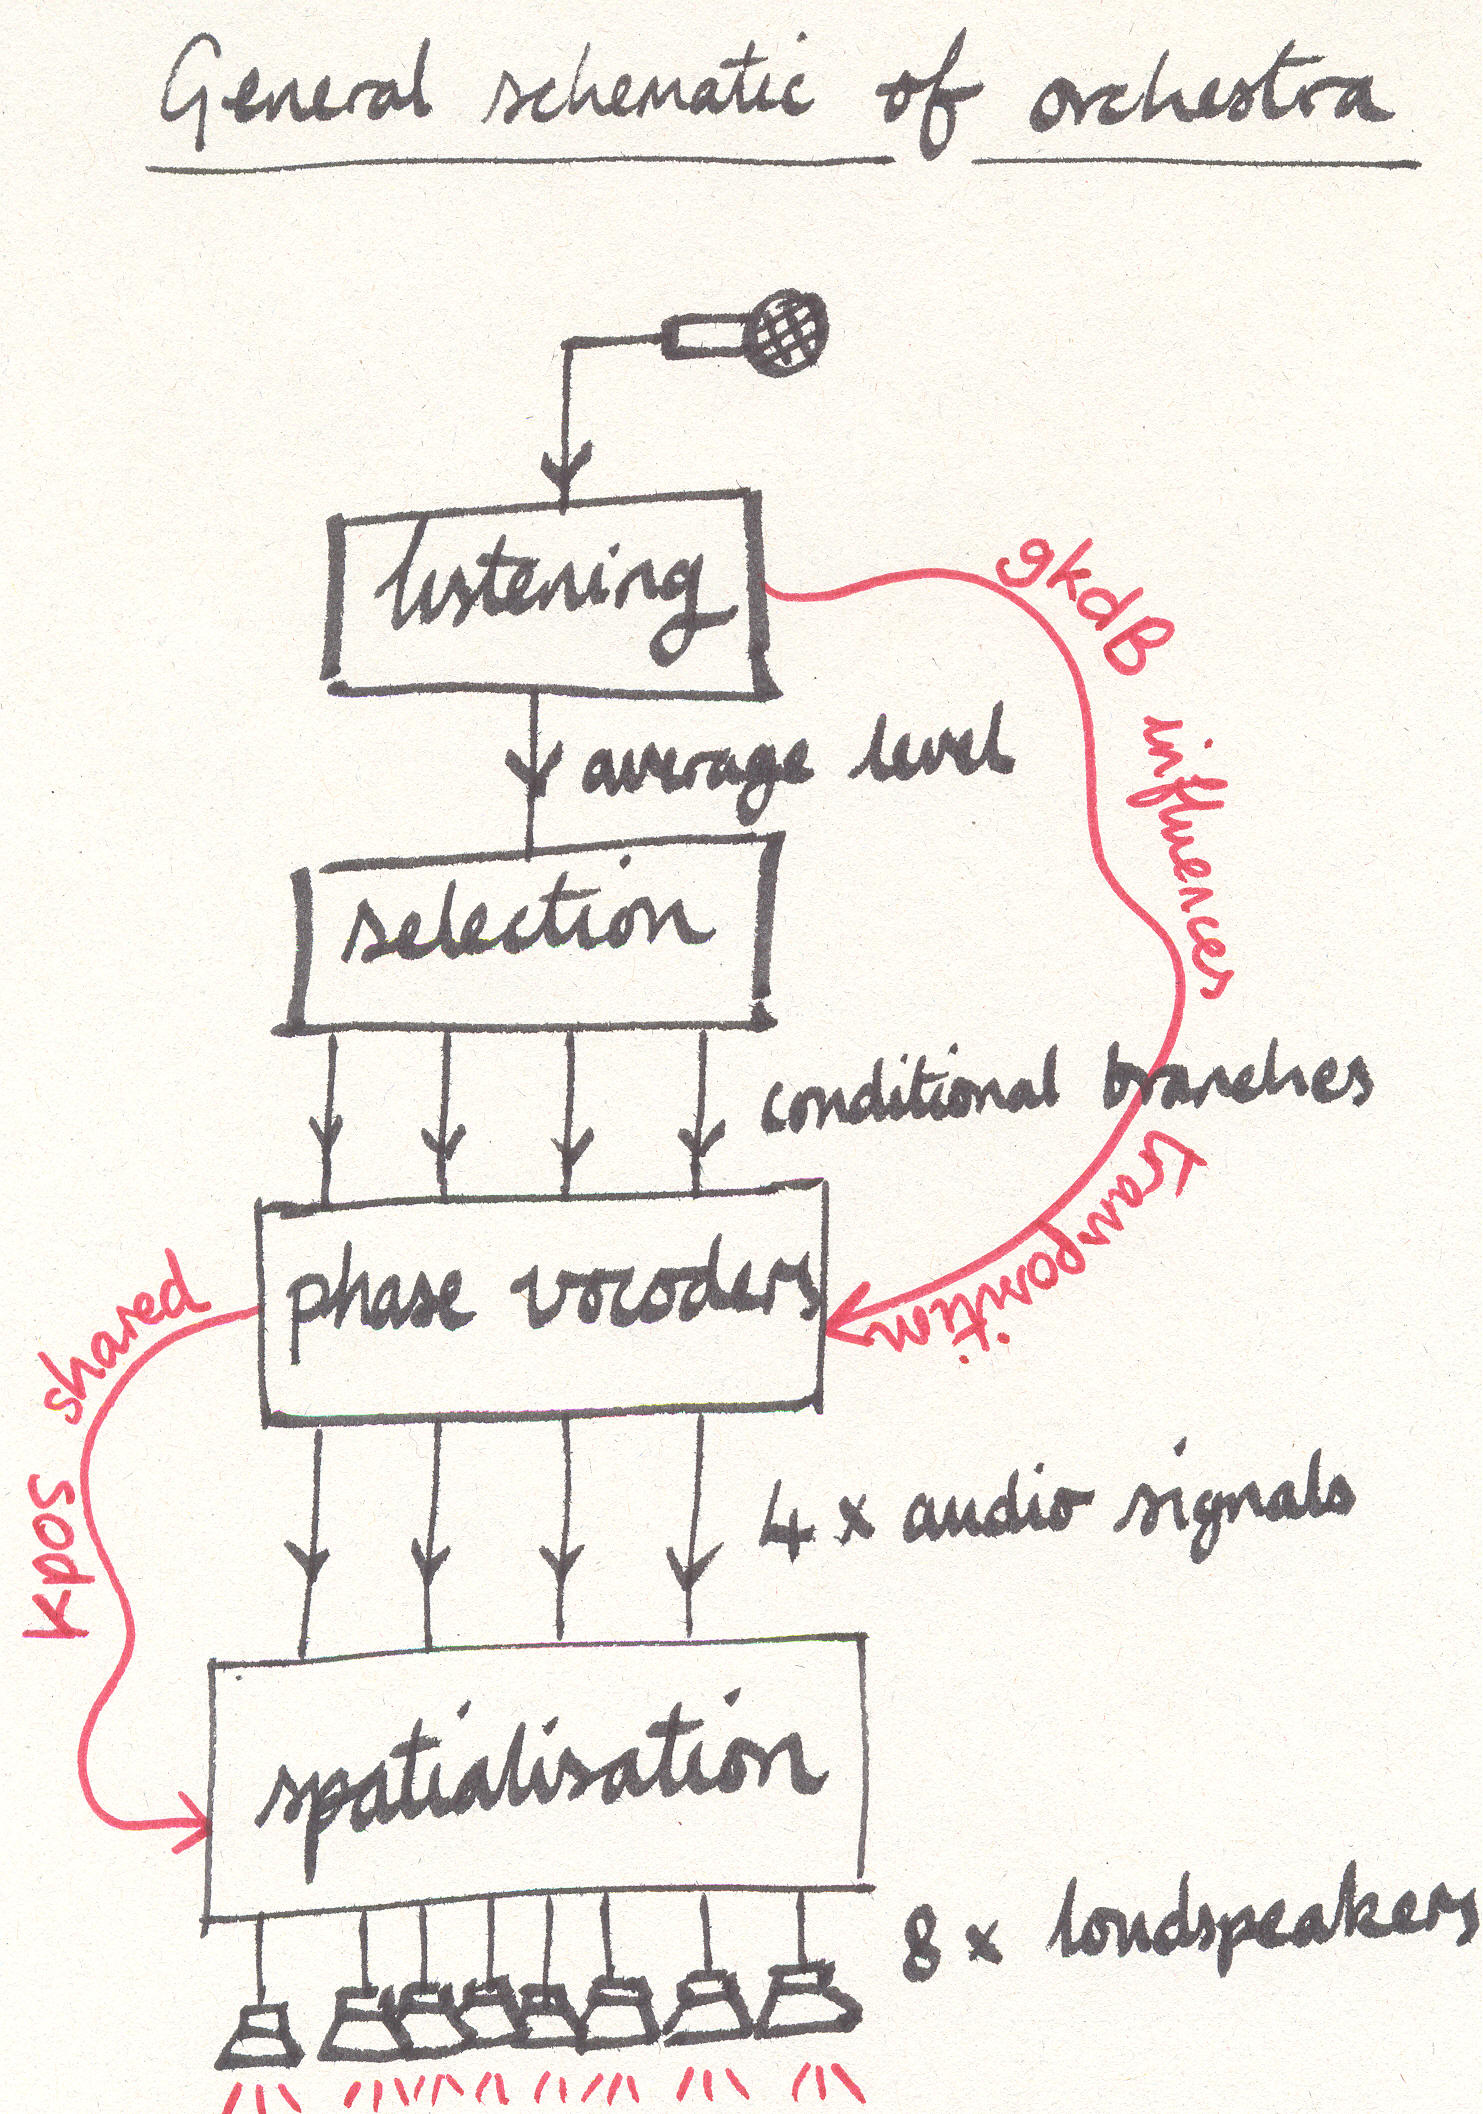 General schematic of orchestra
listening
gkdB influences transposition
average level
selection
conditional branches
phase vocoders
shared kpos
4 x audio signals
spatialisation
8 x loudspeakers